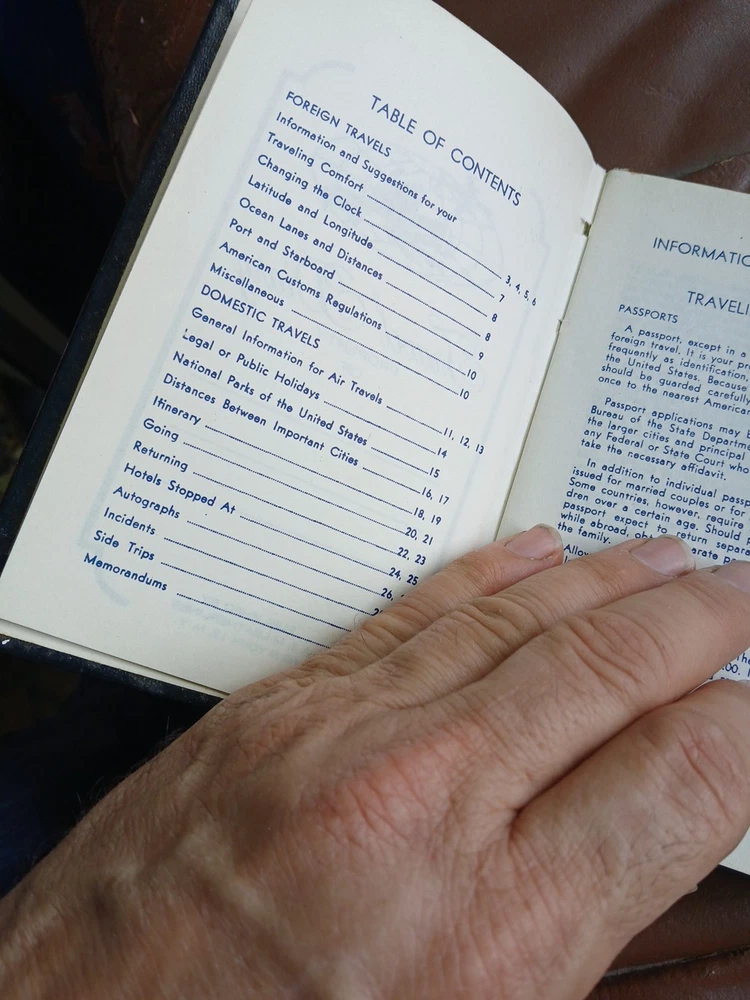 TABLE OF CONTENTS
FOREIGN TRAVELS
Information and Suggestions for your
Traveling Comfort 3, 4, 5, 6
Changing the Clock 7
Latitude and Longitude 8
Ocean Lanes and Distances 8
Port and Starboard 9
American Customs Regulations 10
Miscellaneous 10
DOMESTIC TRAVELS
General Information for Air Travels 11, 12, 13
Legal or Public Holidays 14
National Parks of the United States 15
Distances Between Important Cities 16, 17
Itinerary 18, 19
Going 20, 21
Returning 22, 23
Hotels Stopped At 24, 25
Autographs 26,
Incidents
Side Trips
Memorandums
INFORMATIO
TRAVELI
PASSPORTS
A passport, except in a
foreign travel. It is your pr
frequently as identification
the United States. Because
should be guarded carefully
once to the nearest America
Passport applications may b
Bureau of the State Departm
the larger cities and principal
any Federal or State Court who
take the necessary affidavit.
In addition to individual passp
issued for married couples or for
Some countries, however, require
dren over a certain age. Should
passport expect to return separa
while abroad, obt arate pa
the family.
Allow